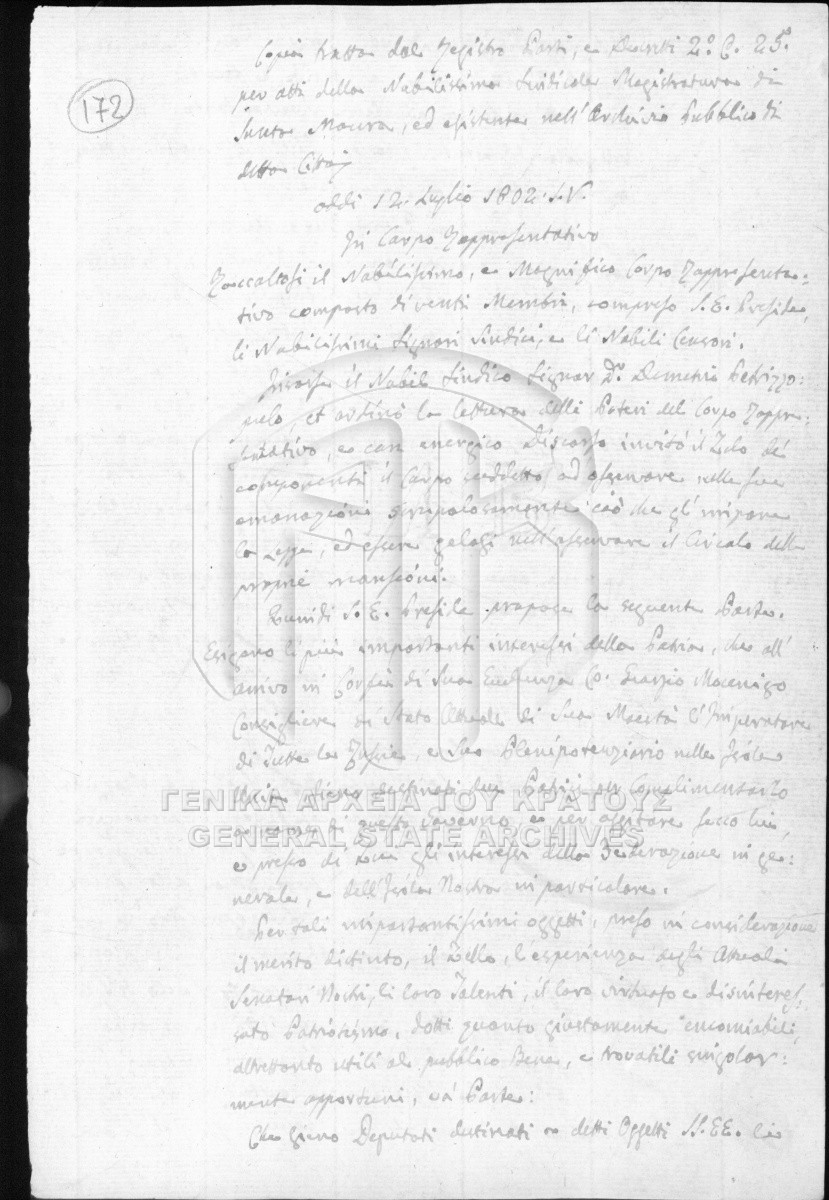 172
Copia tratta dal Registro Parti, e Decreti 2º C. 25.
per atti della Nabilissima Sindical Magistratura di
Santa Maura, ed esistente nell'Archivio Pubblico di
detta Città
addi 12. Luglio 1802. S.V.
In Corpo Rappresentativo
Raccoltosi il Nabilissimo, e Magnifico Corpo Rappresenta=
tivo composto di venti Membri, compreso S. E. Preside,
li Nabilissimi Signori Sindici, e li Nobili Censori.
il Nobil Sindico Signor Dr. Demetrio Petrizzo=
pulo, et ordinò la lettura delli Poteri del Corpo Rappre=
sentativo, e con energico discorso invitò il Zelo dei
componenti il Corpo suddetto ad osservare nelle sue
emanazioni scrupolosamente ciò che gl'impone
la Legge, ed esser gelosi nell'osservare il Circolo delle
proprie mansioni.
Quindi S. E. Preside propose la seguente Parte.
Esigono li più importanti interessi della Patria, che all'
arrivo in Corfù di Sua Eccellenza Co: Giorgio Mocenigo
Consigliere di Stato Attuale di Sua Maestà l'Imperatore
di Tutte le Russie, e Suo Plenipotenziario nelle Isole
siano destinati due Patrizi per complimentarlo
a nome di questo Governo, e per agitare seco lui,
e presso di gl'interessi della Federazione in ge=
nerale, e dell'Isola Nostra in particolare.
Per tali importantissimi oggetti, preso in considerazione
il merito distinto, il Zello, l'esperienza degli Attuali
Senatori Nostri, li loro Talenti, il loro virtuoso e disinteres=
sato Patriotismo, doti quanto giustamente encomiabili,
altrettanto utili al pubblico Bene, e trovatili singolar=
mente opportuni, và Parte:
Che siano Deputati destinati a detti Oggetti SS. EE. li
ΓΕΝΙΚΑ ΑΡΧΕΙΑ ΤΟΥ ΚΡΑΤΟΥΣ
GENERAL STATE ARCHIVES